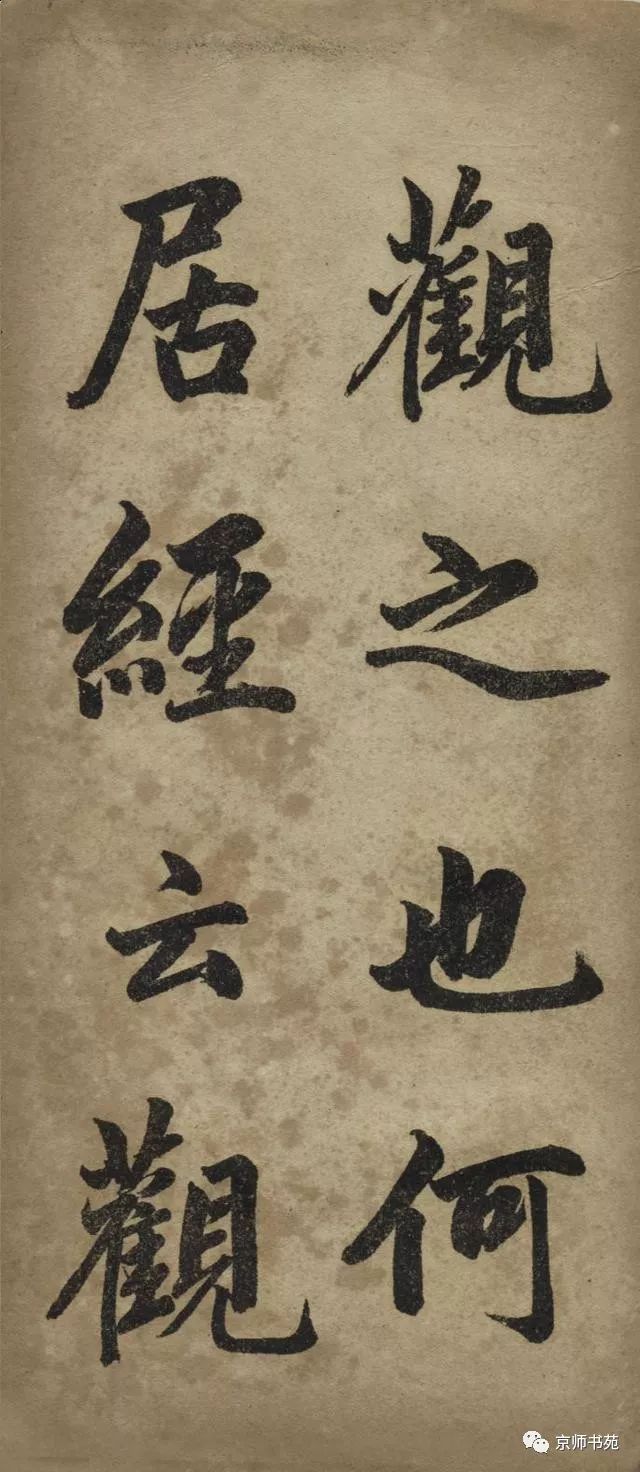 觀之也何
居經云觀
京师书苑